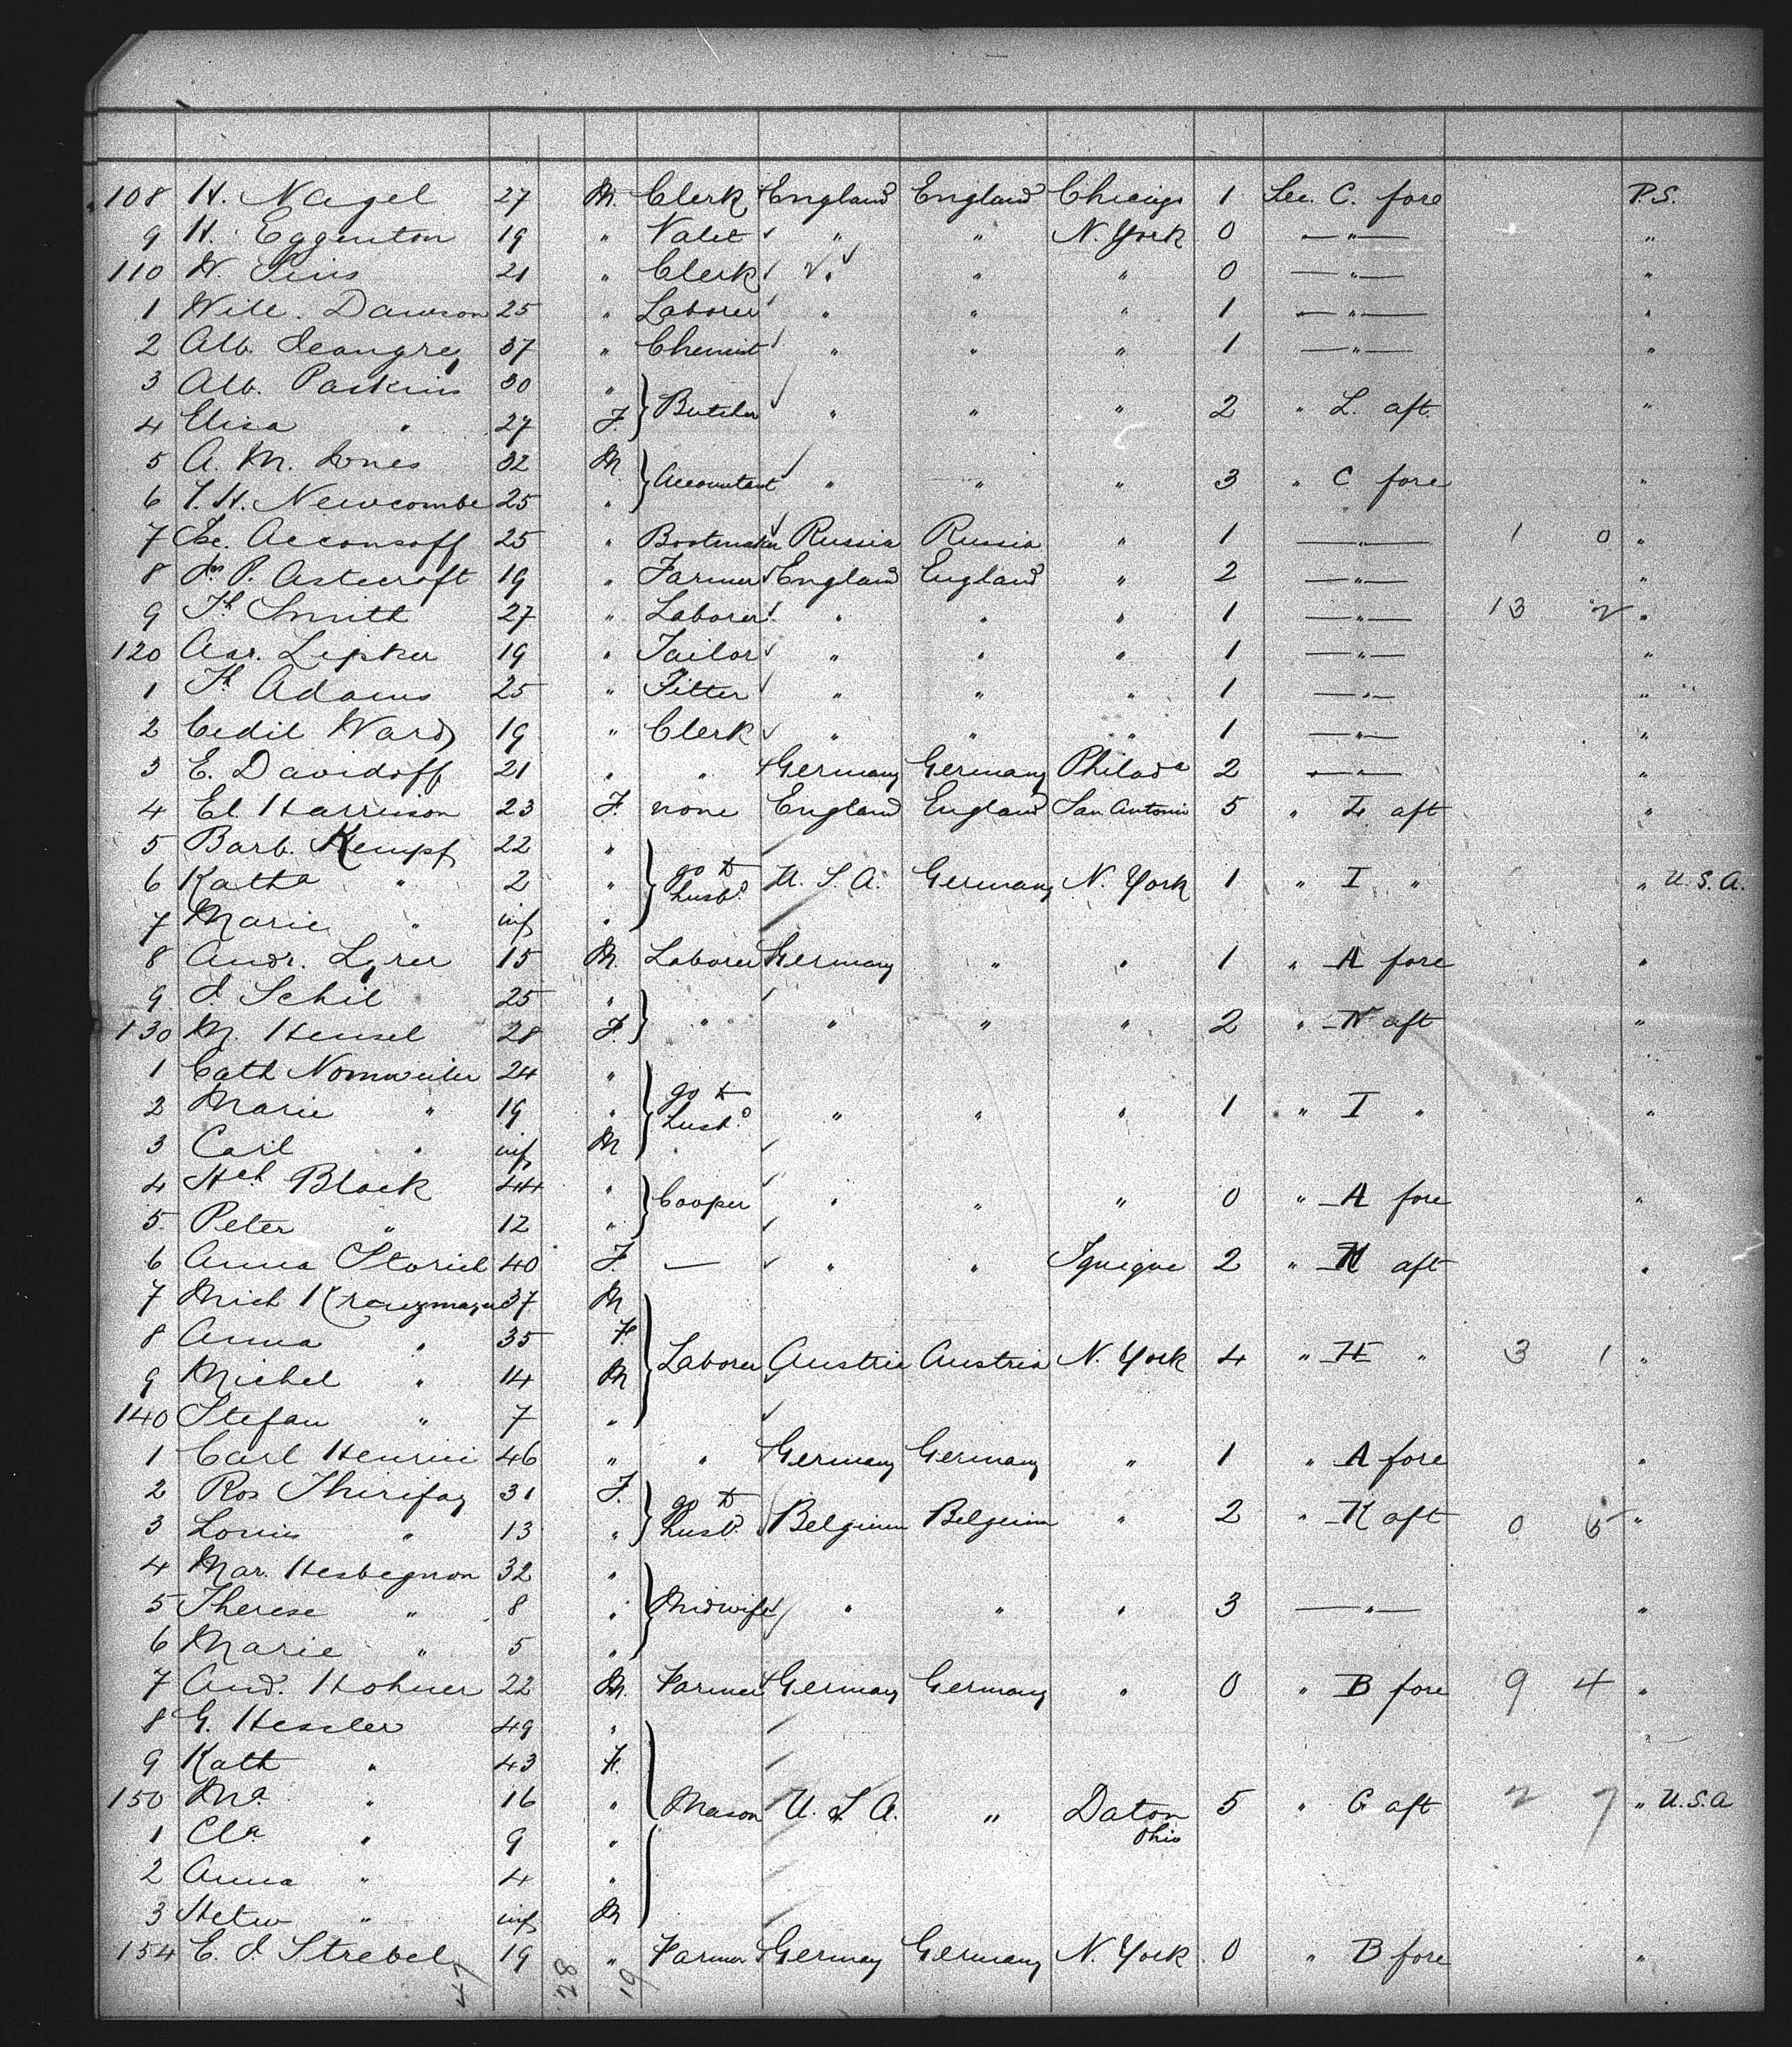 108 H. Nagel 27 M. Clerk England England Chicago 1 Sec. C. fore P.S.
9 H. Eggenton 19 " Valet " " N. York 0 — " — "
110 W. 21 " Clerk " " " 0 — " — "
1 Will. Dawson 25 " Laborer " " " 1 — " — "
2 Alb. 37 " Chemist " " " 1 — " — "
3 Alb. Paskins 30 "
Butcher " " " 2 " L. aft. "
4 Elisa " 27 F.
5 A. M. Jones 32 M
Accountant " " " 3 " C fore "
6 T. H. Newcombe 25 "
7 25 " Bootmaker Russia Russia " 1 — " — 1 0 "
8 P. Astcroft 19 " Farmer England England " 2 — " — "
9 Th Smith 27 " Laborer " " " 1 — " — 13 2 "
120 Aar. Lipker 19 " Tailor " " " 1 — " — "
1 Th Adams 25 " Fitter " " " 1 — " — "
2 Cedil Ward 19 " Clerk " " " 1 — " — "
3 E. Davidoff 21 " " Germany Germany Philada 2 — " — "
4 El. Harrisson 23 F. none England England San Antonio 5 " L aft "
5 Barb. Kempf 22 "
6 Katha " 2 " go to husbd. U. S. A. Germany N. York 1 " I " " U. S. A.
7 Marie " inf "
8 Andr. Lyrer 15 M. Laborer Germany " " 1 " A fore "
9 J. Schil 25 "
" " " " 2 " N aft "
130 M. Hensel 28 F.
1 Cath Nonnweiler 24 "
2 Marie " 19 " go to husbd. " " " 1 " I " "
3 Carl " inf M
4 Hch Black 44 "
Cooper " " " 0 " A fore "
5 Peter " 12 "
6 Anna Storich 40 F. — " " Iquique 2 " aft "
7 Mich 37 M
8 Anna " 35 F.
Laborer Austria Austria N. York 4 " H " 3 1 "
9 Michel " 14 M
140 Stefan " 7 "
1 Carl Henrici 46 " " Germany Germany " 1 " A fore "
2 Ros Thirifay 31 F.
go to husbd. Belgium Belgium " 2 " K aft 0 5 "
3 Louis " 13 "
4 Mar. Hesbegnon 32 "
5 Therese " 8 " Midwife " " " 3 — " — "
6 Marie " 5 "
7 And. Hohner 22 M. Farmer Germany Germany " 0 " B fore 9 4 "
8 G. Hessler 49 "
9 Kath " 43 F.
150 Ma " 16 " Mason U. S. A. " Daton Ohio 5 " G aft 2 7 " U.S.A
1 Cla " 9 "
2 Anna " 4 "
3 " inf M
154 E. J Strebel 19 " Farmer Germany Germany N. York 0 " B fore "
47 28 19